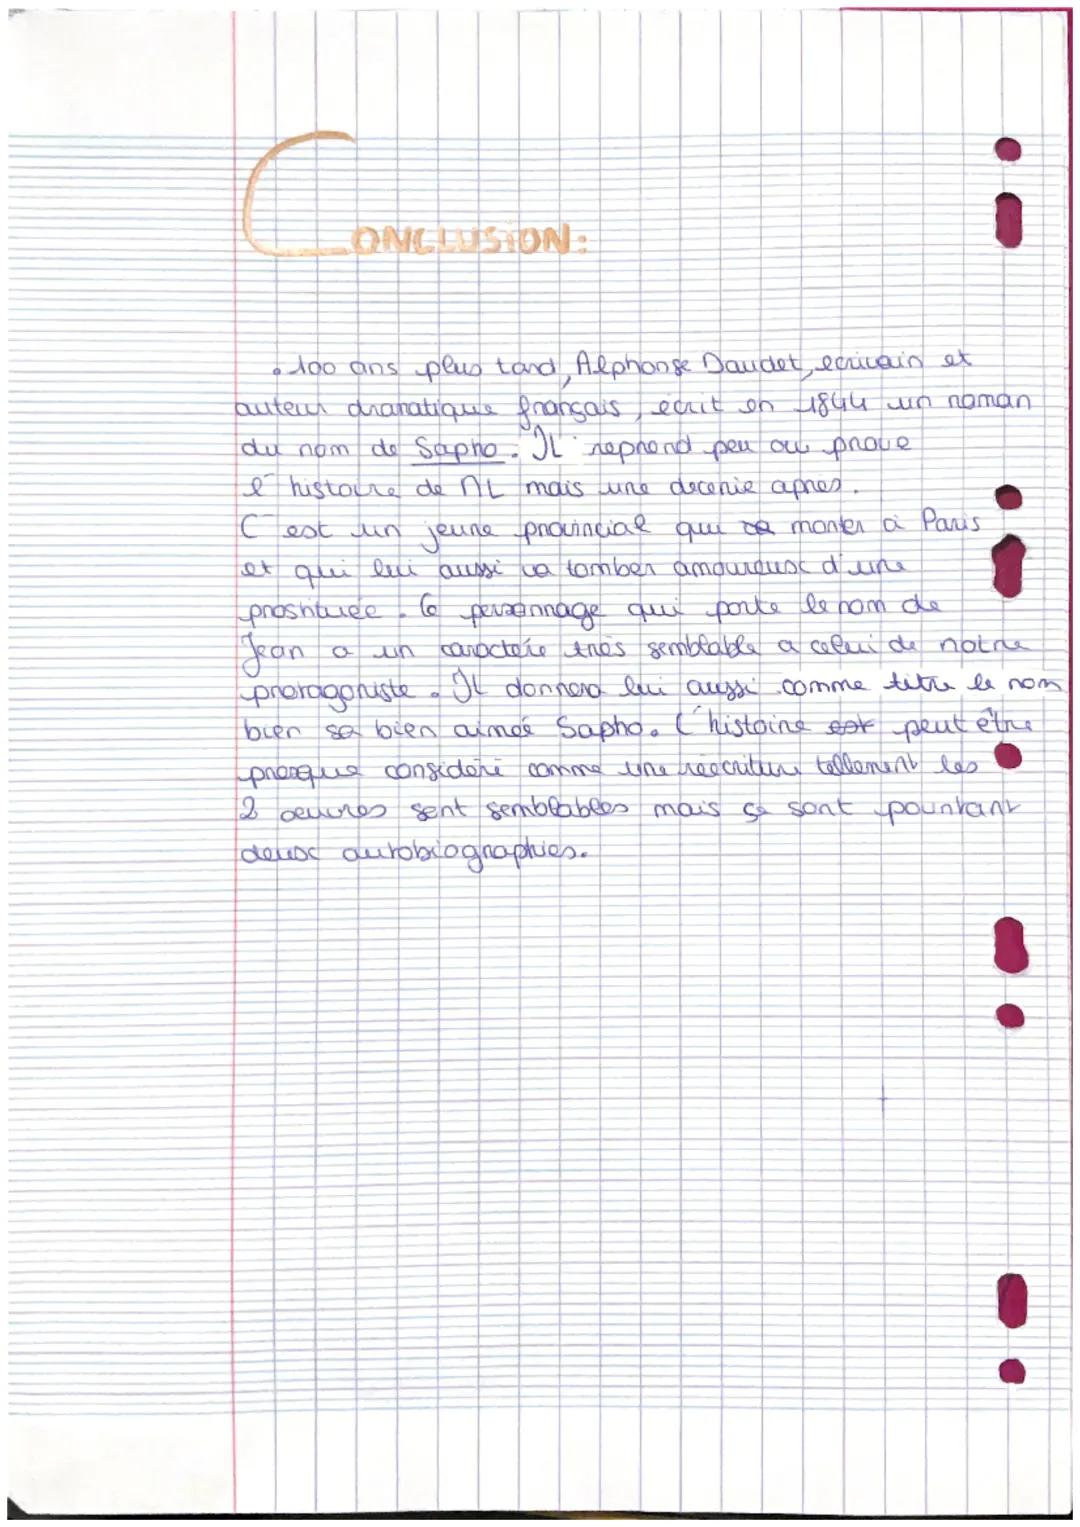 CONCLUSION:
• 100 ans plus tard, Alphonse Daudet, ecrivain et
auteur dramatique français, écrit en 1844 un roman
du nom de Sapho. Il reprend peu ou prove
l'histoire de ML mais une decenie apres.
C'est un jeune provincial qui va monter à Paris
et qui lui aussi va tomber amoureux d'une
prostituée. Ce personnage qui porte le nom de
Jean a un caractère très semblable a celui de notre
protagoniste. Il donnera lui aussi comme titre le nom
bien sa bien aimée Sapho. L'histoire est peut être
presque considéré comme une réécriture tellement les
2 oeuvres sent semblables mais se sont pourtant
deux autobiographies.